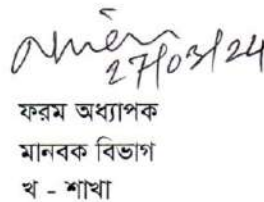 27/03/24
ফরম অধ্যাপক
মানবক বিভাগ
খ - শাখা